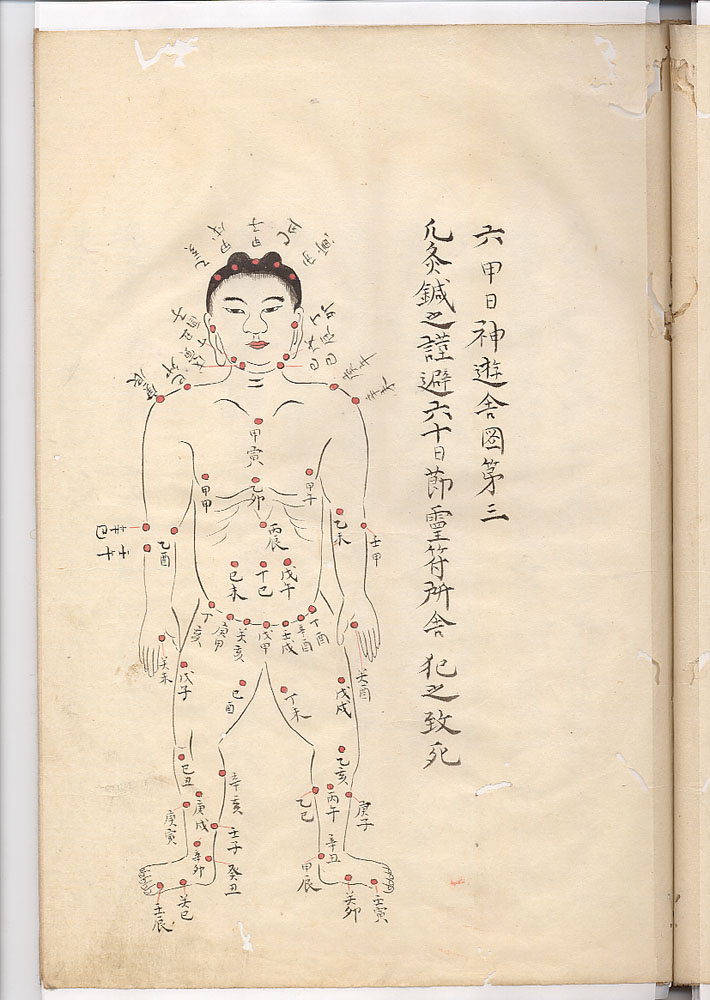 六甲日神遊舎圖第三
凡灸鍼之謹避六十日節靈符所舎 犯之致死
乙亥
甲戌
甲子
庚辰
甲寅
甲申
乙卯
甲午
丙辰
乙酉
乙未
壬申
己未
丁巳
戊午
丁亥
庚申
癸亥
戊申
壬戌
辛酉
丁酉
癸未
癸酉
戊子
己酉
丁未
戊戌
己丑
辛亥
乙亥
乙巳
丙午
庚子
庚寅
庚戌
壬子
辛卯
癸丑
辛丑
甲辰
壬辰
癸巳
癸卯
壬寅